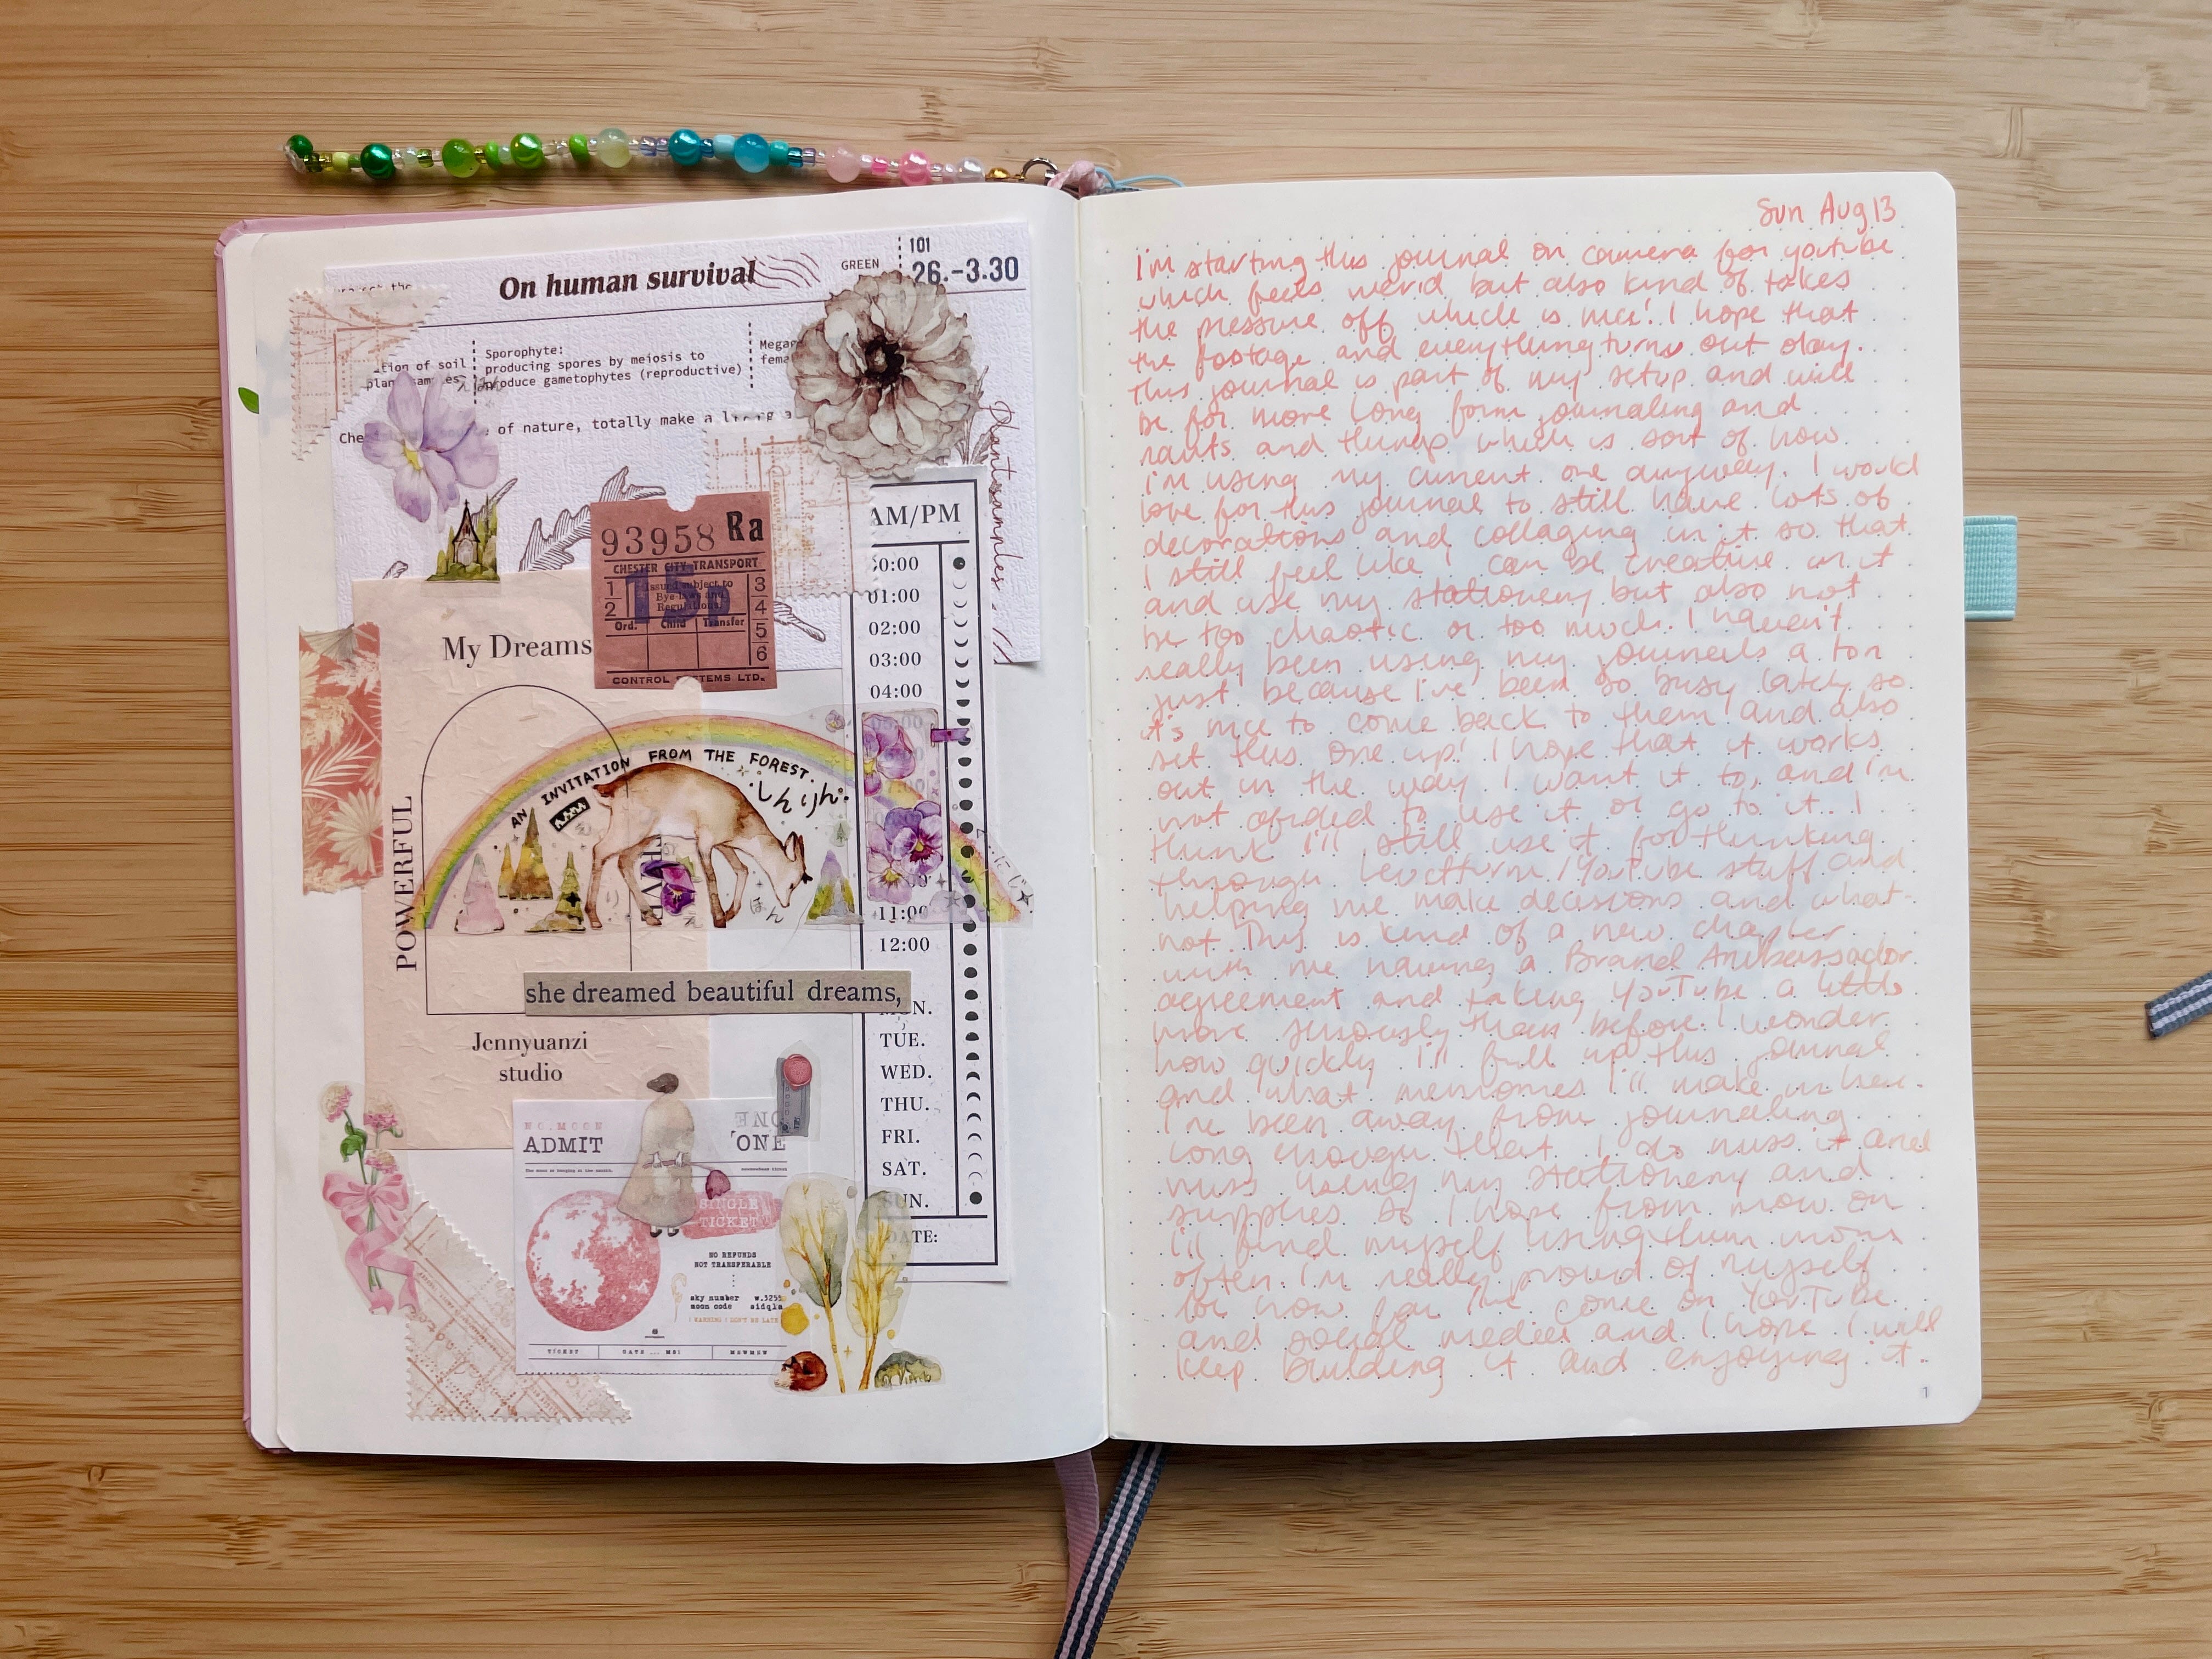 On human survival
GREEN
101
26.-3.30
tion of soil
Sporophyte:
producing spores by meiosis to
produce gametophytes (reproductive)
Mega
fema
Che
of nature, totally make a
Plant samples
93958 Ra
CHESTER CITY TRANSPORT
1 2
Issued subject to
Bye-laws and
Regulations.
15
3
4
5
6
Ord. Child Transfer
CONTROL SYSTEMS LTD.
AM/PM
01:00
02:00
03:00
04:00
11:00
12:00
MON.
TUE.
WED.
THU.
FRI.
SAT.
SUN.
DATE:
My Dreams
POWERFUL
AN INVITATION FROM THE FOREST.
しんりん
she dreamed beautiful dreams,
Jennyuanzi
studio
NO.MOON
ADMIT ONE
SINGLE
TICKET
NO REFUNDS
NOT TRANSFERABLE
sky number w.325
moon code sidqla
TICKET
Sun Aug 13
I'm starting this journal on camera for youtube
which feels weird but also kind of takes
the pressure off which is nice! I hope that
the footage and everything turns out okay.
This journal is part of my setup and will
be for more long form journaling and
rants and things which is sort of how
I'm using my current one anyway. I would
love for this journal to still have lots of
decorations and collaging in it so that
I still feel like I can be creative in it
and use my stationery but also not
be too chaotic or too much. I haven't
really been using my journals a ton
just because I've been so busy lately so
it's nice to come back to them and also
set this one up! I hope that it works
out in the way I want it to, and I'm
not afraid to use it or go to it. I
think I'll still use it for thinking
through Leuchtturm/YouTube stuff and
helping me make decisions and what-
not. This is kind of a new chapter
with me having a Brand Ambassador
agreement and taking YouTube a little
more seriously than before. I wonder
how quickly I'll fill up this journal
and what memories I'll make in here.
I've been away from journaling
long enough that I do miss it and
miss using my stationery and
supplies so I hope from now on
I'll find myself using them more
often. I'm really proud of myself
for how far I've come on YouTube
and social media and I hope I will
keep building it and enjoying it.
1